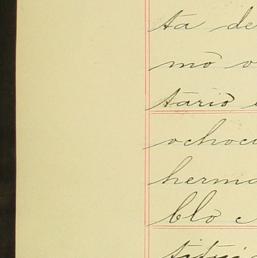 ta de
mo o
tario
ochoci
herma
blo c